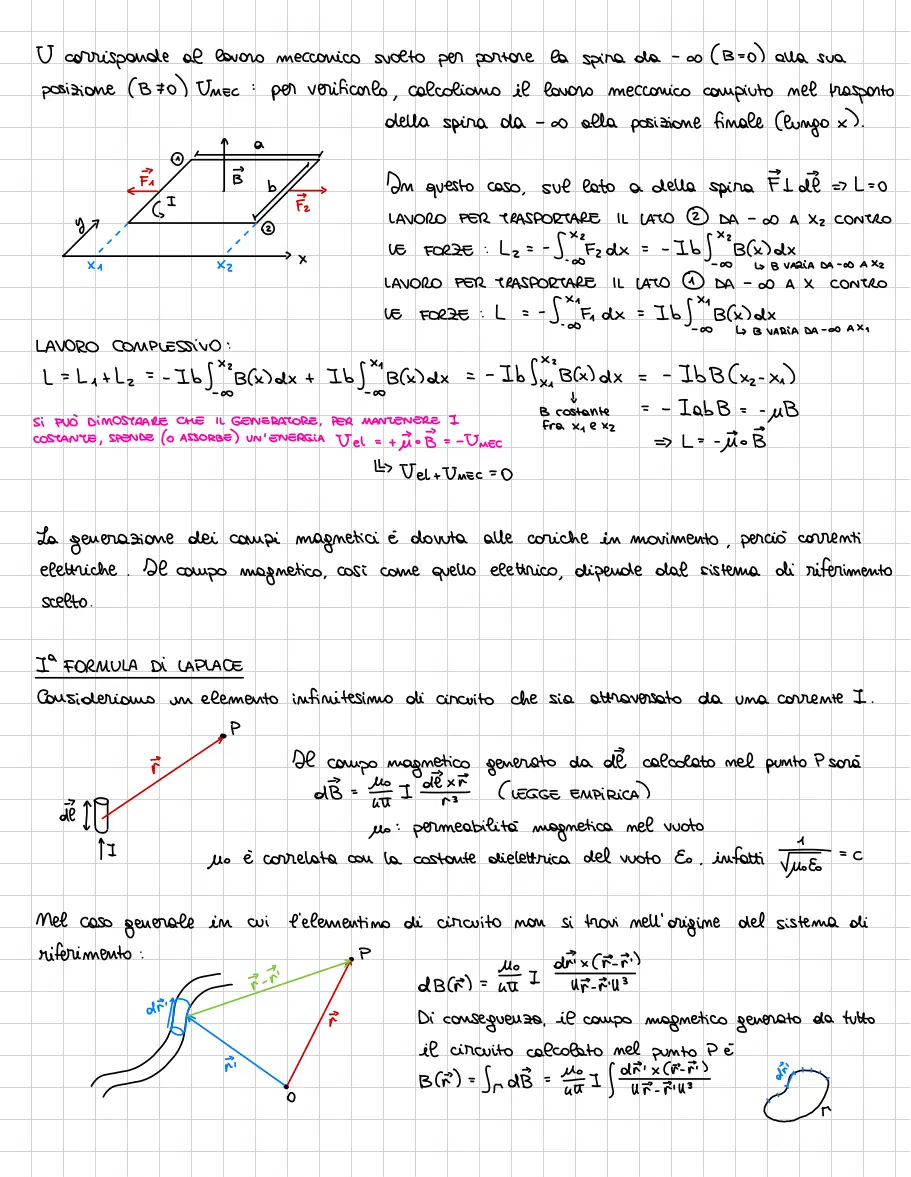 U corrisponde al lavoro meccanico svolto per portare la spira da -∞ (B=0) alla sua
posizione (B≠0) U_MEC : per verificarlo, calcoliamo il lavoro meccanico compiuto nel trasporto
della spira da -∞ alla posizione finale (lungo x).
① a
F⃗₁ I B⃗ b F⃗₂
y ②
x₁ x₂ x
In questo caso, sul lato a della spira F⃗⊥dl⃗ => L=0
LAVORO PER TRASPORTARE IL LATO ② DA -∞ A x₂ CONTRO
LE FORZE : L₂ = -∫_{-∞}^{x₂} F₂dx = -Ib∫_{-∞}^{x₂} B(x)dx
↳ B VARIA DA -∞ A x₂
LAVORO PER TRASPORTARE IL LATO ① DA -∞ A X CONTRO
LE FORZE : L = -∫_{-∞}^{x₁} F₁dx = Ib∫_{-∞}^{x₁} B(x)dx
↳ B VARIA DA -∞ A x₁
LAVORO COMPLESSIVO:
L = L₁+L₂ = -Ib∫_{-∞}^{x₂} B(x)dx + Ib∫_{-∞}^{x₁} B(x)dx = -Ib∫_{x₁}^{x₂} B(x)dx = -IbB(x₂-x₁)
↓ B costante fra x₁ e x₂
= -IabB = -μB
=> L = -μ⃗∘B⃗
SI PUÒ DIMOSTRARE CHE IL GENERATORE, PER MANTENERE I
COSTANTE, SPENDE (O ASSORBE) UN'ENERGIA U_el = +μ⃗∘B⃗ = -U_MEC
↳ U_el + U_MEC = 0
La generazione dei campi magnetici è dovuta alle cariche in movimento, perciò correnti
elettriche. Il campo magnetico, così come quello elettrico, dipende dal sistema di riferimento
scelto.
Iª FORMULA DI LAPLACE
Consideriamo un elemento infinitesimo di circuito che sia attraversato da una corrente I.
P
r⃗
dl⃗
I
Il campo magnetico generato da dl⃗ calcolato nel punto P sarà
dB⃗ = μ₀/4π I dl⃗×r⃗/r³ (LEGGE EMPIRICA)
μ₀: permeabilità magnetica nel vuoto
μ₀ è correlata con la costante dielettrica del vuoto ε₀, infatti 1/√μ₀ε₀ = c
Nel caso generale in cui l'elementino di circuito non si trovi nell'origine del sistema di
riferimento:
P
r⃗-r⃗'
dr⃗'
r⃗
r⃗'
O
dB(r⃗) = μ₀/4π I dr⃗'×(r⃗-r⃗')/‖r⃗-r⃗'‖³
Di conseguenza, il campo magnetico generato da tutto
il circuito calcolato nel punto P è
B(r⃗) = ∫_Γ dB⃗ = μ₀/4π I ∫ dr⃗'×(r⃗-r⃗')/‖r⃗-r⃗'‖³
dr⃗'
Γ